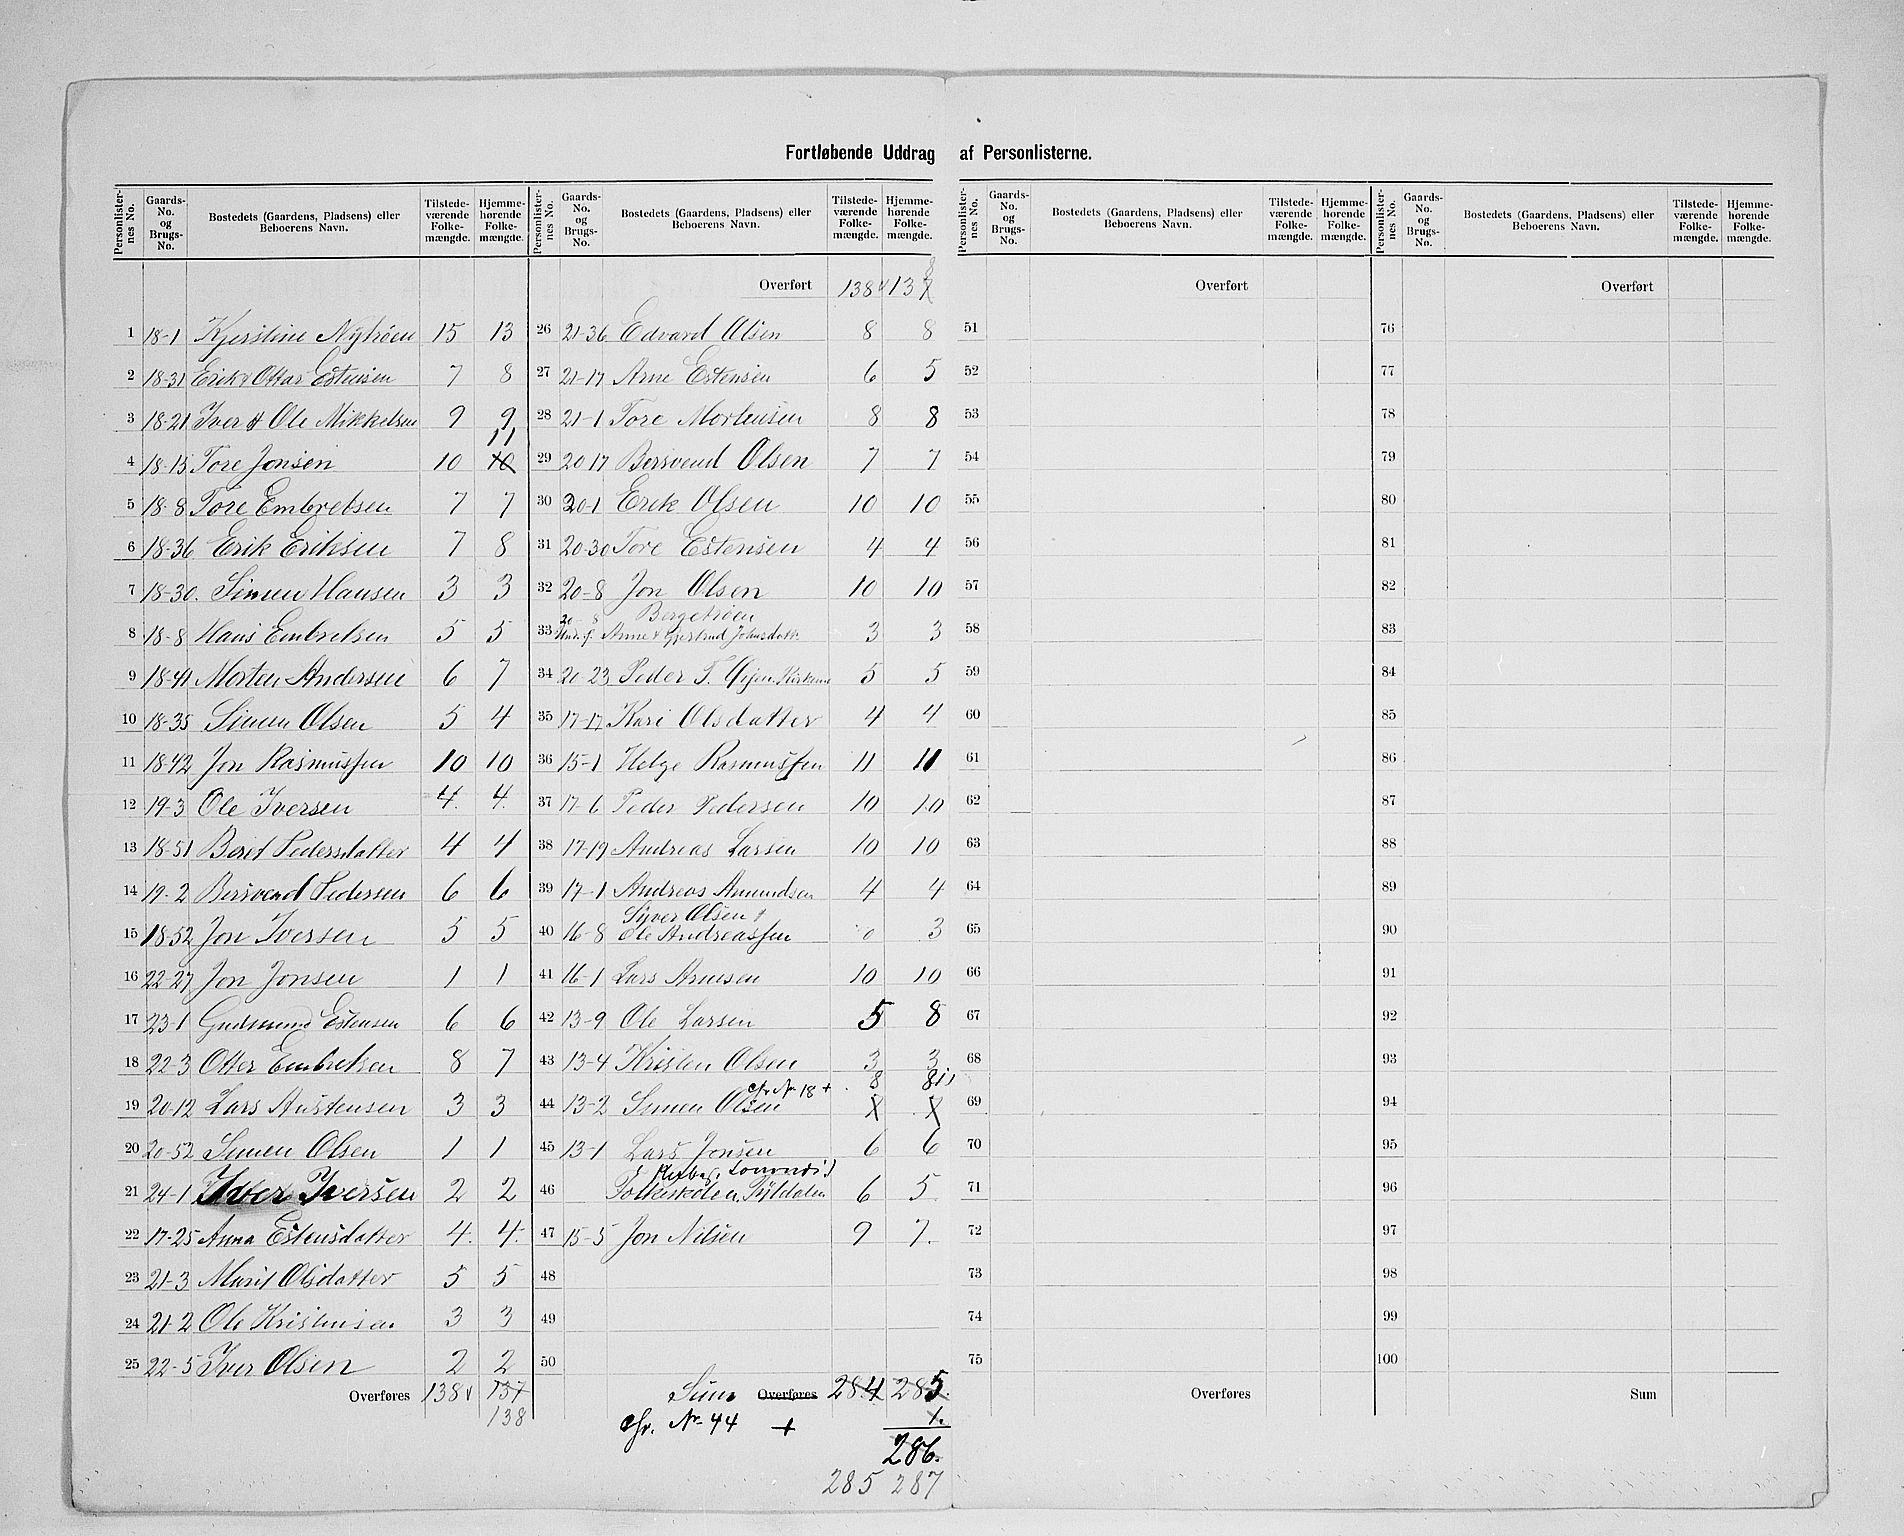 Fortløbende Uddrag af Personlisterne.
Personlister-nes No. Gaards-No. og Brugs-No. Bostedets (Gaardens, Pladsens) eller Beboerens Navn. Tilstede-værende Folke-mængde. Hjemme-hørende Folke-mængde.
1 18-1 Kjerstine Nytrøen 15 13
2 18-31 Erik & Ottar Estensen 7 8
3 18-21 Iver & Ole Mikkelsen 9 9
4 18-15 Tore Jonsen 10 10 11
5 18-8 Tore Embretsen 7 7
6 18-36 Erik Eriksen 7 8
7 18-30. Simen Hansen 3 3
8 18-8 Hans Embretsen 5 5
9 18-41 Morten Andersen 6 7
10 18-35 Simen Olsen 5 4
11 18-42 Jon Rasmussen 10 10
12 19-3 Ole Iversen 4. 4.
13 18-51 Beret Pedersdatter 4 4
14 19-2 Bersvend Pedersen 6 6
15 18-52 Jon Iversen 5 5
16 22-27 Jon Jonsen 1 1
17 23-1 Gudmund Estensen 6 6
18 22-3 Otter Embretsen 8 7
19 20-12 Lars Austensen 3 3
20 20-52 Simen Olsen 1 1
21 24-1 Iver Iversen 2 2
22 17-25 Anna Estensdatter 4. 4.
23 21-3 Marit Olsdatter 5 5
24 21-2 Ole Kristensen 3 3
25 22-5 Iver Olsen 2 2
Overføres 138 137
138
Personlister-nes No. Gaards-No. og Brugs-No. Bostedets (Gaardens, Pladsens) eller Beboerens Navn. Tilstede-værende Folke-mængde. Hjemme-hørende Folke-mængde.
Overført 138 137 8
26 21-36 Edvard Olsen 8 8
27 21-17 Arne Estensen 6 5
28 21-1 Tore Mortensen 8 8
29 20 17 Bersvend Olsen 7 7
30 20-1 Erik Olsen 10 10
31 20-30 Tore Estensen 4 4
32 20-8 Jon Olsen 10 10
20-8 Bergetrøen
33 Arne & Gjertrud Johnsdatt. 3 3
34 20-23 Peder T. Øien. 5 5
35 17-17 Kari Olsdatter 4 4
36 15-1 Helge Rasmussen 11 11
37 17-6 Peder Pedersen 10 10
38 17-19 Andreas Larsen 10 10
39 17-1 Andreas Amundsen 4 4
Siver Olsen &
40 16-8 Ole Andreassen 0 3
41 16-1 Lars Arnesen 10 10
42 13-9 Ole Larsen 5 8
43 13-4 Kristen Olsen 3 3
cfr. Nr. 18 + 8 8
44 13-2 Simen Olsen
45 13-1 Lars Jonsen 6 6
46 Folkeskolen, Tyldalen 6 5.
47 15-5 Jon Nilsen 9 7.
48
49
50
Sum Overføres 284 285.
cfr. Nr. 44 + 1.
286.
285 287
Personlister-nes No. Gaards-No. og Brugs-No. Bostedets (Gaardens, Pladsens) eller Beboerens Navn. Tilstede-værende Folke-mængde. Hjemme-hørende Folke-mængde.
Overført
51
52
53
54
55
56
57
58
59
60
61
62
63
64
65
66
67
68
69
70
71
72
73
74
75
Overføres
Personlister-nes No. Gaards-No. og Brugs-No. Bostedets (Gaardens, Pladsens) eller Beboerens Navn. Tilstede-værende Folke-mængde. Hjemme-hørende Folke-mængde.
Overført
76
77
78
79
80
81
82
83
84
85
86
87
88
89
90
91
92
93
94
95
96
97
98
99
100
Sum